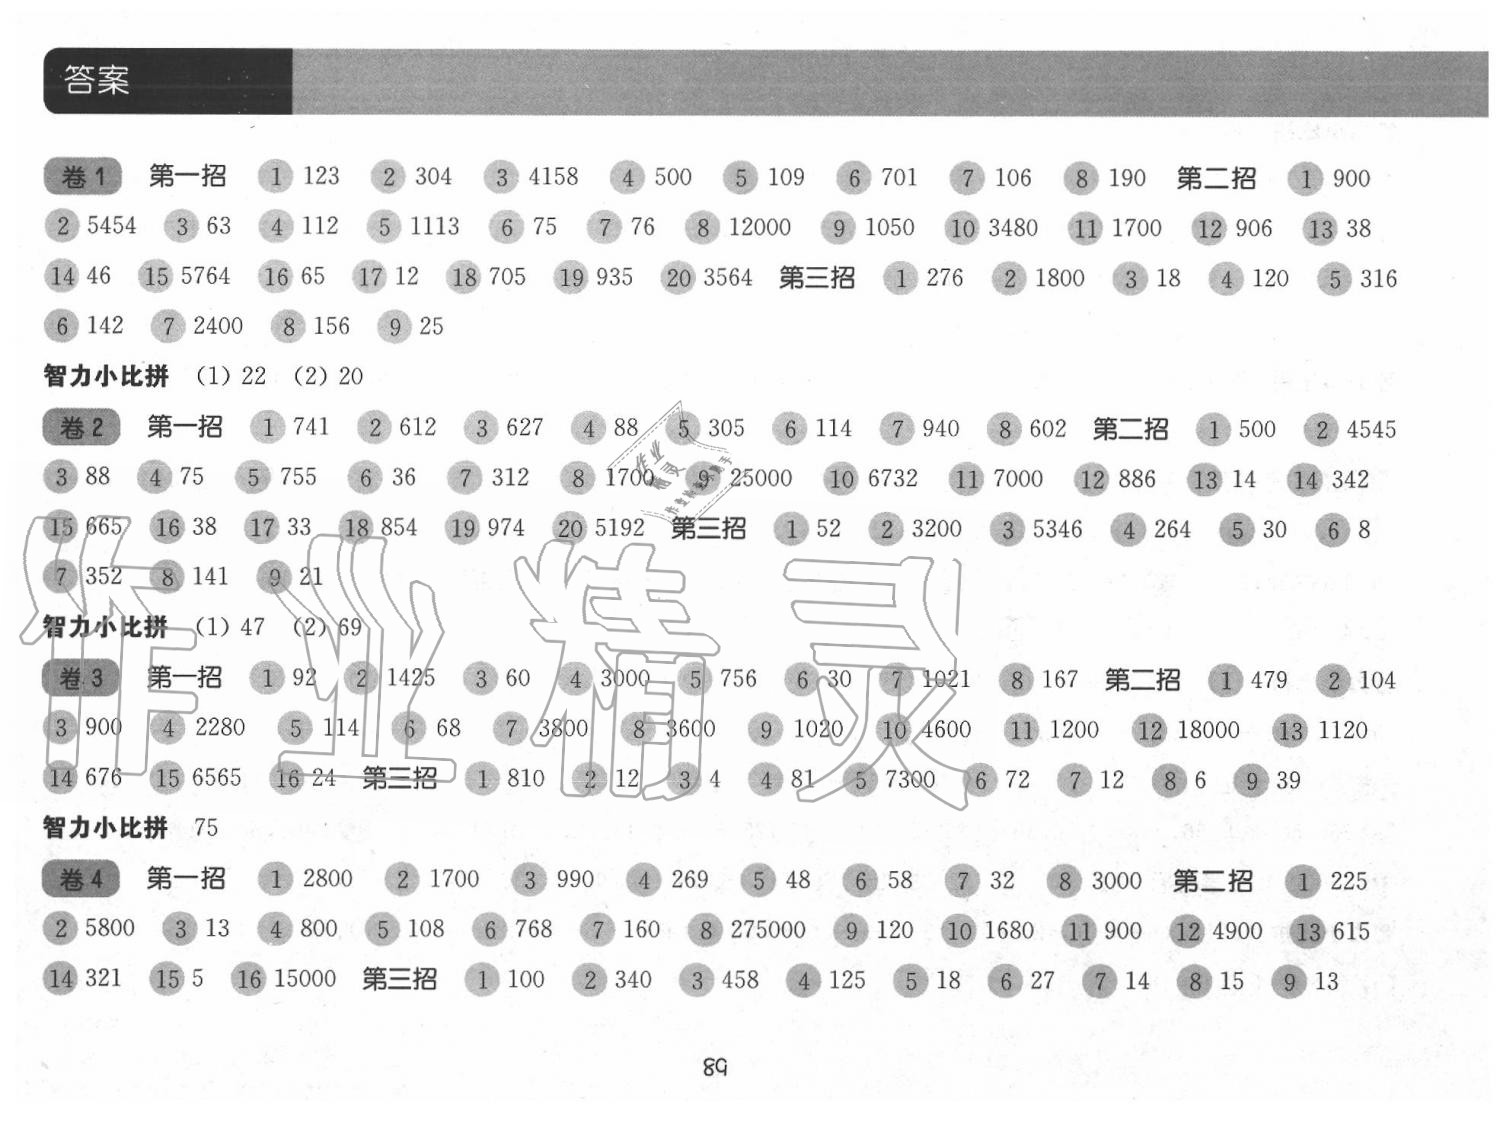 答案
卷1 第一招 1 123 2 304 3 4158 4 500 5 109 6 701 7 106 8 190 第二招 1 900
2 5454 3 63 4 112 5 1113 6 75 7 76 8 12000 9 1050 10 3480 11 1700 12 906 13 38
14 46 15 5764 16 65 17 12 18 705 19 935 20 3564 第三招 1 276 2 1800 3 18 4 120 5 316
6 142 7 2400 8 156 9 25
智力小比拼 (1) 22 (2) 20
卷2 第一招 1 741 2 612 3 627 4 88 5 305 6 114 7 940 8 602 第二招 1 500 2 4545
3 88 4 75 5 755 6 36 7 312 8 1700 9 25000 10 6732 11 7000 12 886 13 14 14 342
15 665 16 38 17 33 18 854 19 974 20 5192 第三招 1 52 2 3200 3 5346 4 264 5 30 6 8
7 352 8 141 9 21
智力小比拼 (1) 47 (2) 69
卷3 第一招 1 92 2 1425 3 60 4 3000 5 756 6 30 7 1021 8 167 第二招 1 479 2 104
3 900 4 2280 5 114 6 68 7 3800 8 3600 9 1020 10 4600 11 1200 12 18000 13 1120
14 676 15 6565 16 24 第三招 1 810 2 12 3 4 4 81 5 7300 6 72 7 12 8 6 9 39
智力小比拼 75
卷4 第一招 1 2800 2 1700 3 990 4 269 5 48 6 58 7 32 8 3000 第二招 1 225
2 5800 3 13 4 800 5 108 6 768 7 160 8 275000 9 120 10 1680 11 900 12 4900 13 615
14 321 15 5 16 15000 第三招 1 100 2 340 3 458 4 125 5 18 6 27 7 14 8 15 9 13
89
作业精灵
作业
精灵